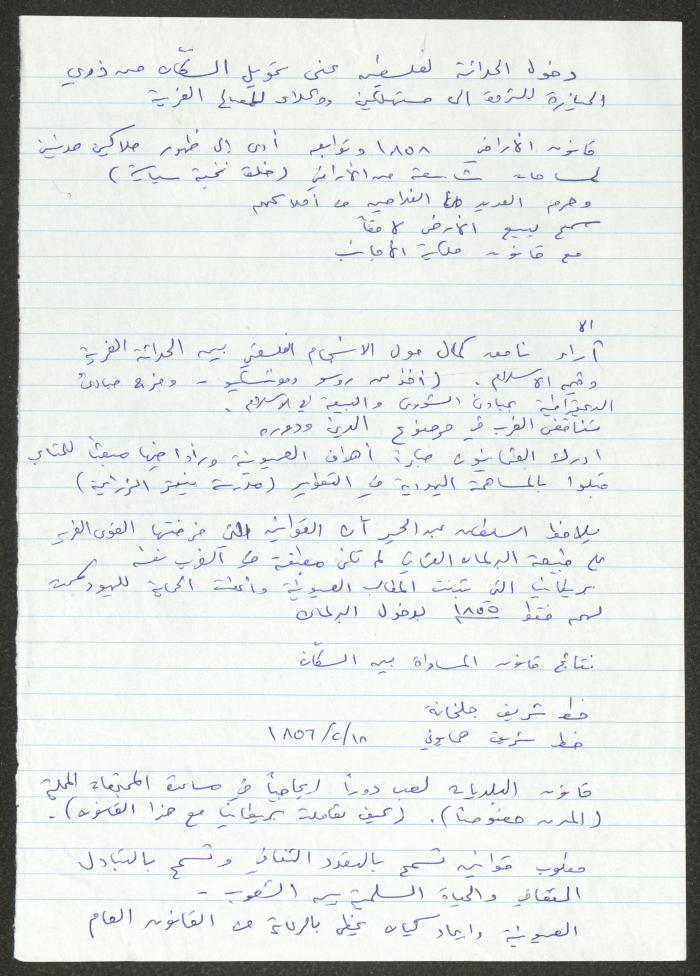 دخول الحداثة لفلسطين عنى تحويل السكّان من ذوي
الحيازة للثروة الى مستهلكين ووكلاء للمصالح الغربية
قانون الأراضي ١٨٥٨ وتوابعه أدى إلى ظهور ملاكين مدنيين
لمساحات شاسعة من الأراضي (خلق نخبة سياسية)
وحرم العديد من الفلاحين من أملاكهم
سمح ببيع الأرض لاحقاً
مع قانون ملكية الأجانب
الا
آراء نامق كمال حول الانسجام الفلسفي بين الحداثة الغربية
وقيم الاسلام. (أخذ من روسو ومونتسكيو - ومزج مبادئ
الديمقراطية بمبادئ الشورى والبيعة في الاسلام.
تناقض الغرب في موضوع الدين ودوره
ادرك العثمانيون مبكراً أهداف الصهيونية
قبلوا بالمساهمة اليهودية في التطوير (مدرسة نيتر الزراعية)
يلاحظ السلطان عبد الحميد أن القوانين التي فرضتها القوى الغربية
على طبيعة البرلمان العثماني لم تكن مطبقة في الغرب نفسه
بريطانيا التي تبنت المطالب الصهيونية وأعطت الحماية لليهود سمحت
لهم فقط ١٨٥٥ بدخول البرلمان
نتائج قانون المساواة بين السكّان
خط شريف جلخانة
خط شريف همايوني ١٨/٢/١٨٥٦
قانون البلديات لعب دوراً ايجابياً في مساعدة المجتمعات المحلية
(المدن خصوصاً). (كيف تعاملت بريطانيا مع هذا القانون).
مطلوب قوانين تسمح بالتعدد الثقافي وتسمح بالتبادل
الثقافي والحياة السلمية بين الشعوب -
الصهيونية وايجاد كيان يحظى بالرعاية من القانون العام